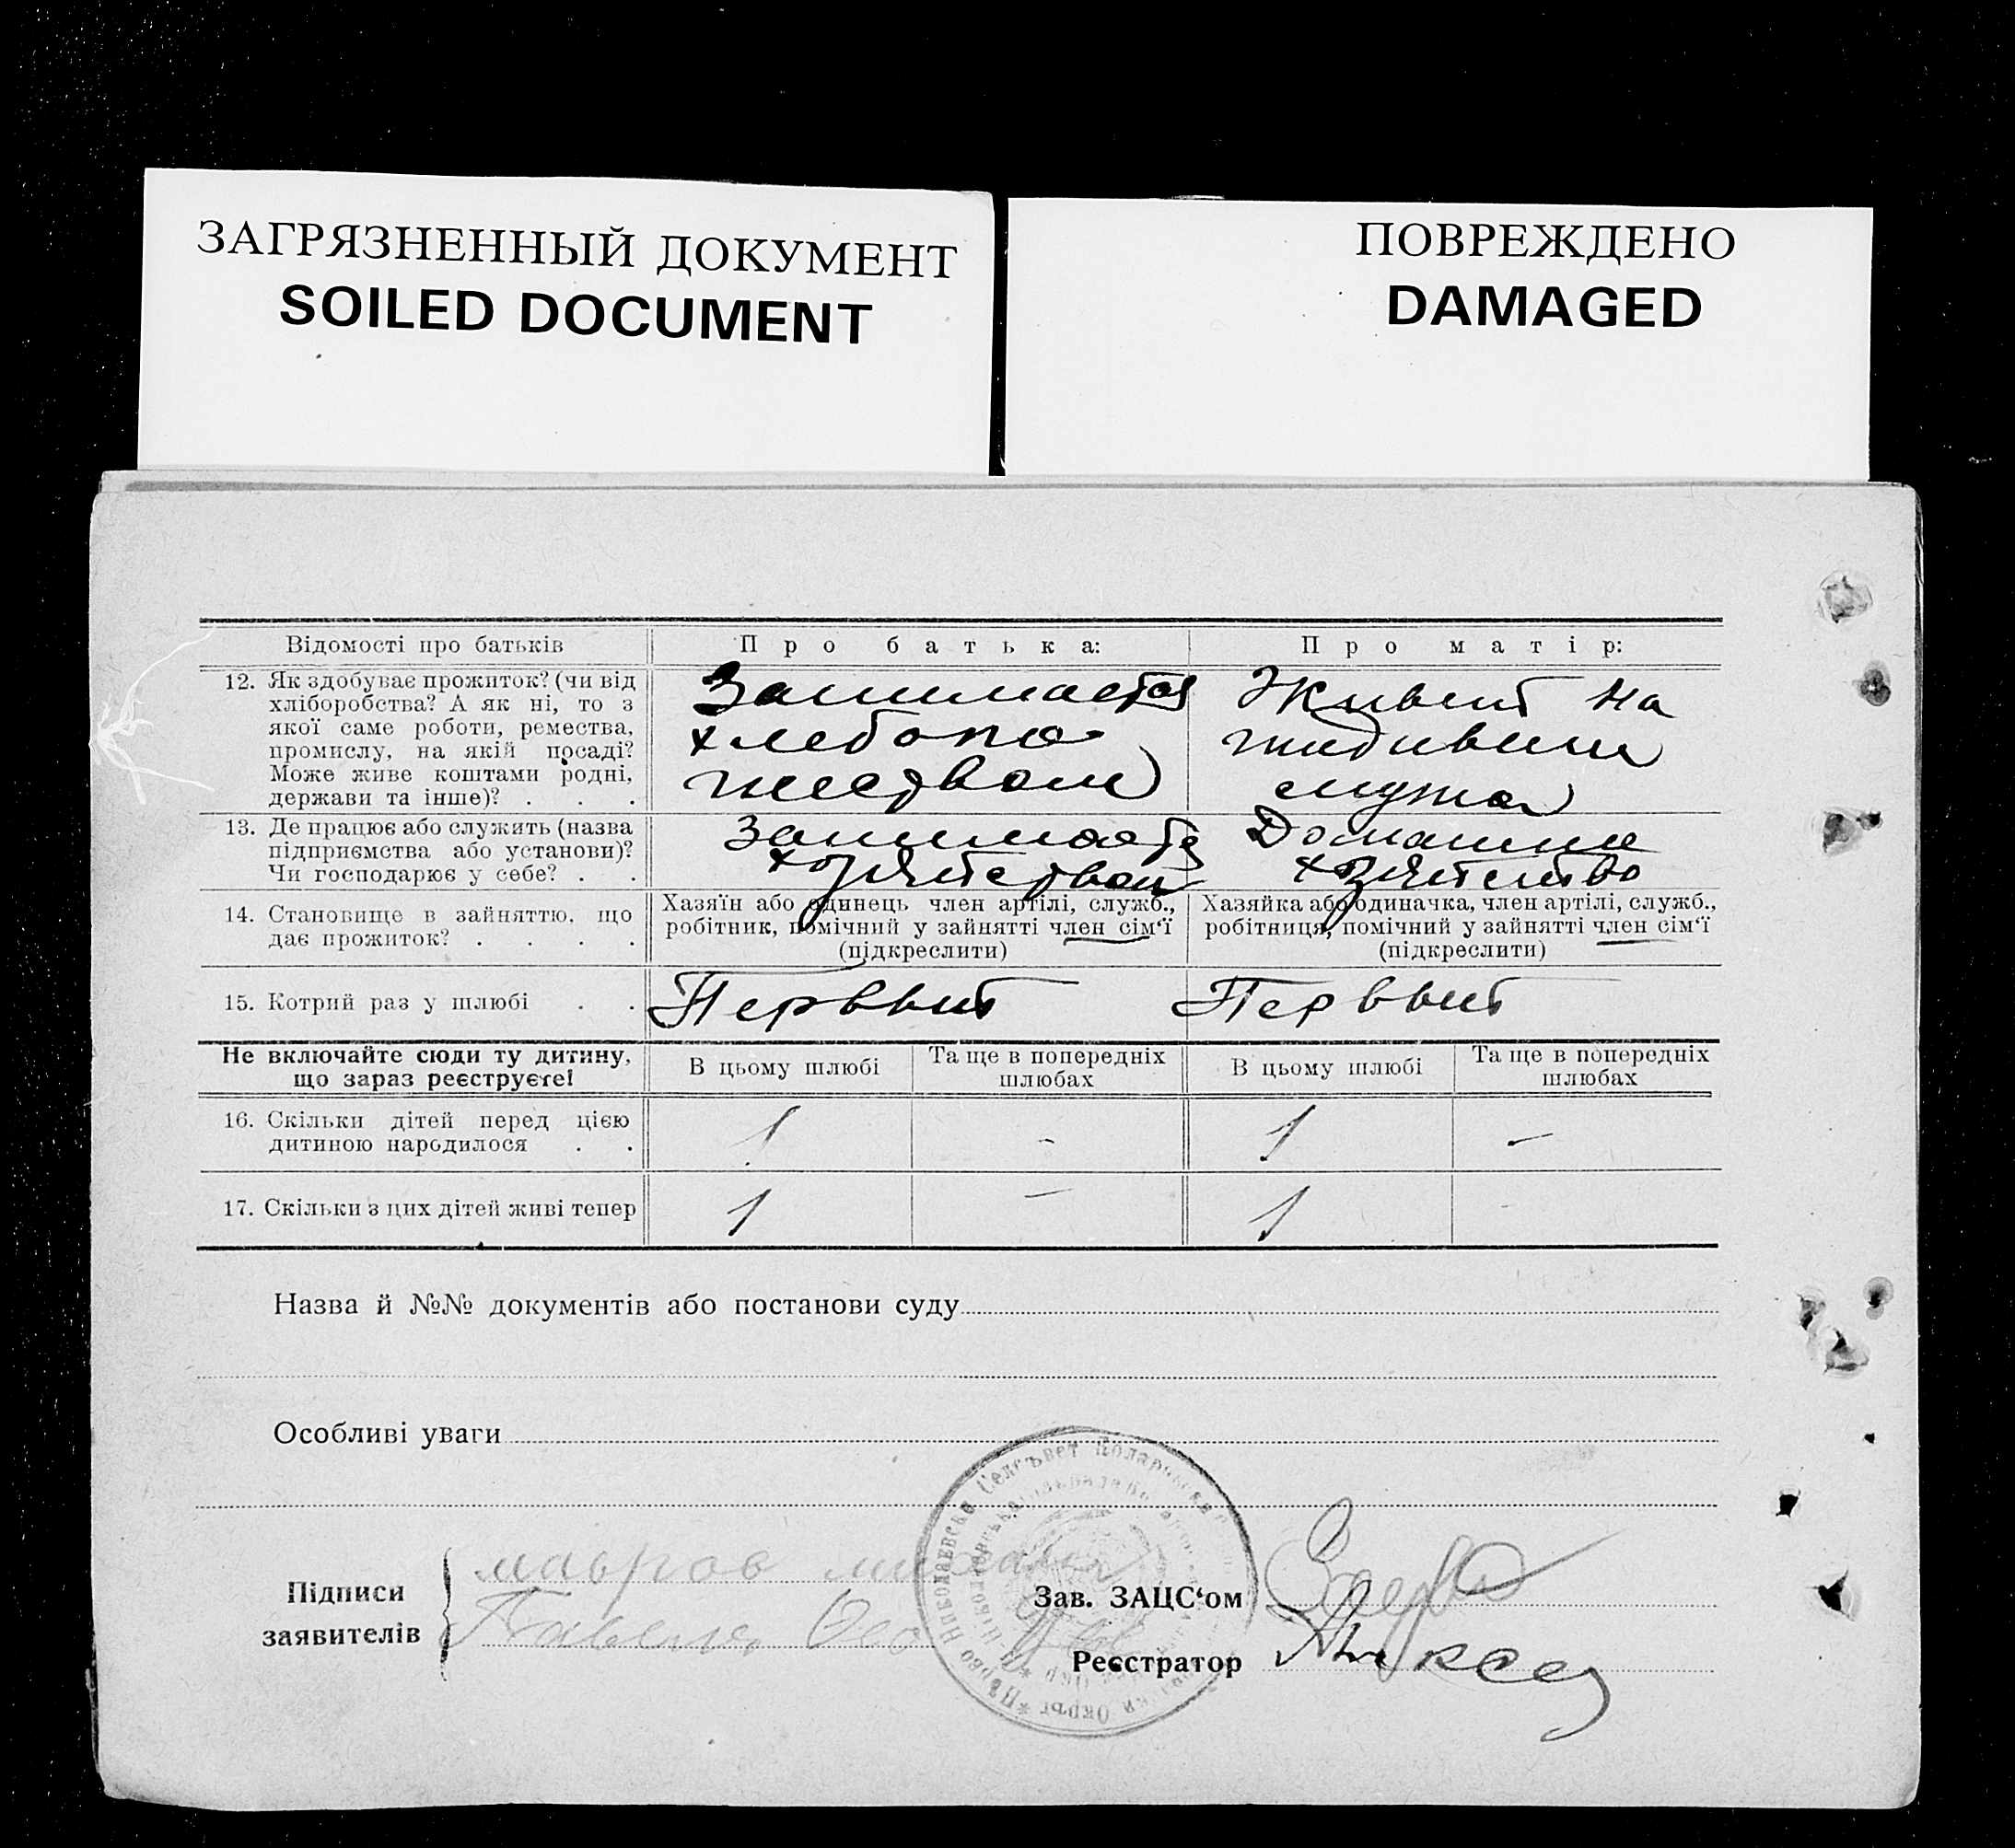 ЗАГРЯЗНЕННЫЙ ДОКУМЕНТ
SOILED DOCUMENT
ПОВРЕЖДЕНО
DAMAGED
Відомості про батьків
Про батька:
Про матір:
12. Як здобуває прожиток? (чи від
хліборобства? А як ні, то з
якої саме роботи, ремества,
промислу, на якій посаді?
Може живе коштами родні,
держави та інше)? . . .
Занимается
хлебопа
шеством
Живет на
иждивении
мужа
13. Де працює або служить (назва
підприємства або установи)?
Чи господарює у себе? . .
Домашнее
14. Становище в зайняттю, що
дає прожиток? . . . .
Хазяїн або одинець член артілі, служб.,
робітник, помічний у зайнятті член сім‘ї
(підкреслити)
Хазяйка або одиначка, член артілі, служб.,
робітниця, помічний у зайнятті член сім‘ї
(підкреслити)
15. Котрий раз у шлюбі . .
Первый
Первый
Не включайте сюди ту дитину,
що зараз реєструєте!
В цьому шлюбі
Та ще в попередніх
шлюбах
В цьому шлюбі
Та ще в попередніх
шлюбах
16. Скільки дітей перед цією
дитиною народилося . .
1
-
1
-
17. Скільки з цих дітей живі тепер
1
-
1
-
Назва й №№ документів або постанови суду
Особливі уваги
Підписи
заявителів
мавров
Зав. ЗАЦС‘ом
Реєстратор